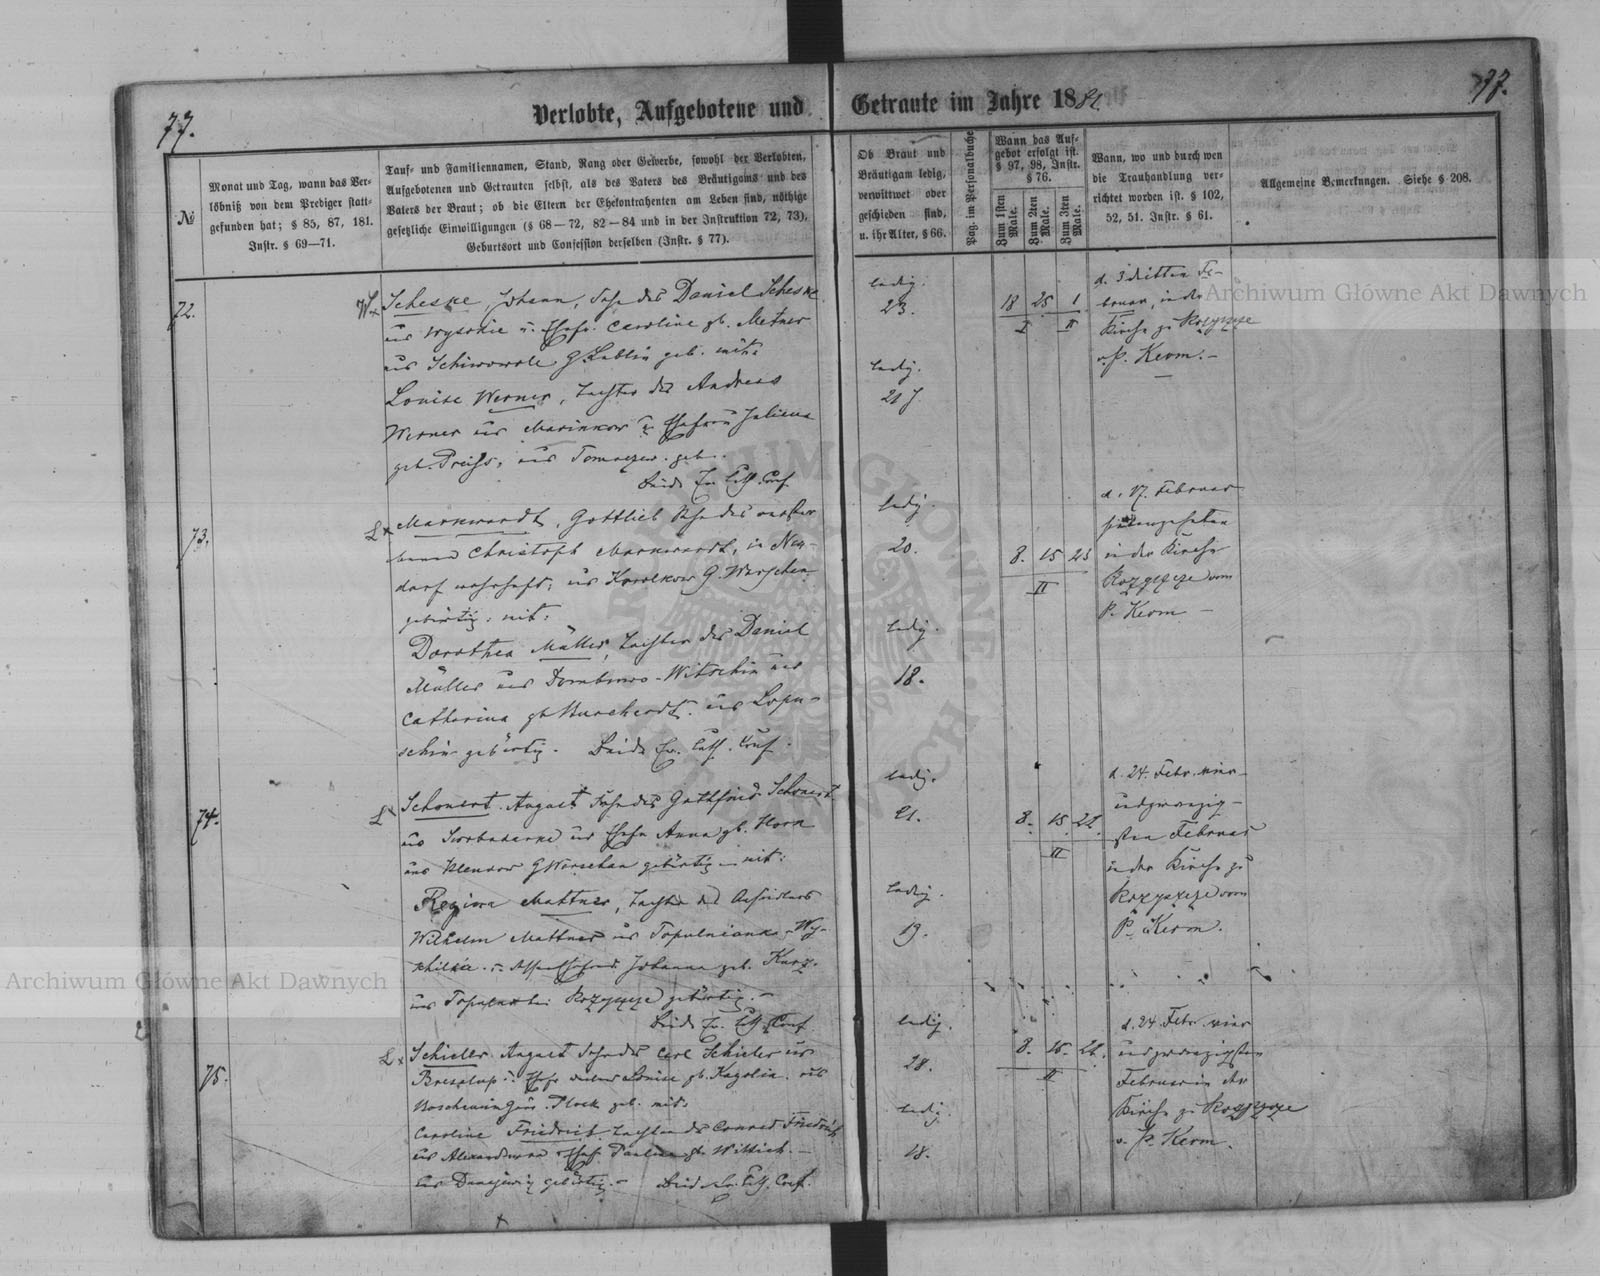 77.
Verlobte, Aufgebotene und Getraute im Jahre 1881
77.
№
Monat und Tag, wann das Ver-
löbniß von dem Prediger statt-
gefunden hat; § 85, 87, 181.
Instr. § 69—71.
Tauf- und Familiennamen, Stand, Rang oder Gewerbe, sowohl der Verlobten,
Aufgebotenen und Getrauten selbst, als des Vaters des Bräutigams und des
Vaters der Braut; ob die Eltern der Ehekontrahenten am Leben sind, nöthige
gesetzliche Einwilligungen (§ 68—72, 82—84 und in der Instruktion 72, 73),
Geburtsort und Confession derselben (Instr. § 77).
Ob Braut und
Bräutigam ledig,
verwittwet oder
geschieden sind,
u. ihr Alter, § 66.
Pag. im Personalbuche
Wann das Auf-
gebot erfolgt ist.
§ 97, 98, Instr.
§ 76.
Zum 1sten Male.
Zum 2ten Male.
Zum 3ten Male.
Wann, wo und durch wen
die Trauhandlung ver-
richtet worden ist. § 102,
52, 51. Instr. § 61.
Allgemeine Bemerkungen. Siehe § 208.
72.
Scheske, Johann, Sohn des Daniel Scheske
aus Wysokie u. Ehefr. Caroline gb. Metner
aus G. Lublin geb. mit:
Louise Werner, Tochter des Andreas
Werner aus Marinkow u. Ehefrau Juliena
geb. Preiss, aus geb.
Beide Ev. Luth. Conf.
ledig.
23.
ledig.
21 J
18 25 1
I II
d. 3 dritten Fe-
bruar, in der
Kirche zu Rozyszcze
v. P. Kerm. —
73.
Markwardt, Gottlieb Sohn des verstor-
benen Christoph Markwardt, in Neu-
dorf wohnhaft, aus Karolkow G. Warschau
gebürtig, mit:
Dorothea Müller, Tochter des Daniel
Müller aus Dombrowo-Witschin und
Catharina gb. Burchardt. aus Lopu-
schin gebürtig. Beide Ev. Luth. Conf.
ledig.
20.
ledig.
18.
8. 15 23
II
d. 17. Februar
siebenzehnten
in der Kirche
Rozyszcze vom
P. Kerm —
74.
Schonert. August Sohn des Gottfried Schonert
aus und Ehefr. Anna gb. Horn
aus G. Warschau gebürtig mit:
Regina Mattner, Tochter des
Wilhelm Mattner aus Topulnianka-Wy-
Johanna geb. Kurz.
aus bei Rozyszcze gebürtig. —
Beide Ev. Luth. Conf.
ledig.
21.
ledig.
19.
8. 15. 22.
II
d. 24. Febr. vier-
undzwanzig-
sten Februar
in der Kirche zu
Rozyszcze vom
P. Kerm.
75.
Schieler August Sohn des Carl Schieler aus
u. Ehefr. Louise gb. aus
Plock geb. mit:
Caroline Friedrich. Tochter des Conrad Friedrich
aus Ehefr. Pauline gb. Wittich. —
aus gebürtig. — Beide Ev. Luth. Conf.
ledig.
28.
ledig.
18.
8. 15. 22.
II
d. 24. Febr. vier
undzwanzigsten
Februar in der
Kirche zu Rozyszcze
v. P. Kerm.
Archiwum Główne Akt Dawnych
Archiwum Główne Akt Dawnych
ARCHIWUM GŁÓWNE AKT DAWNYCH